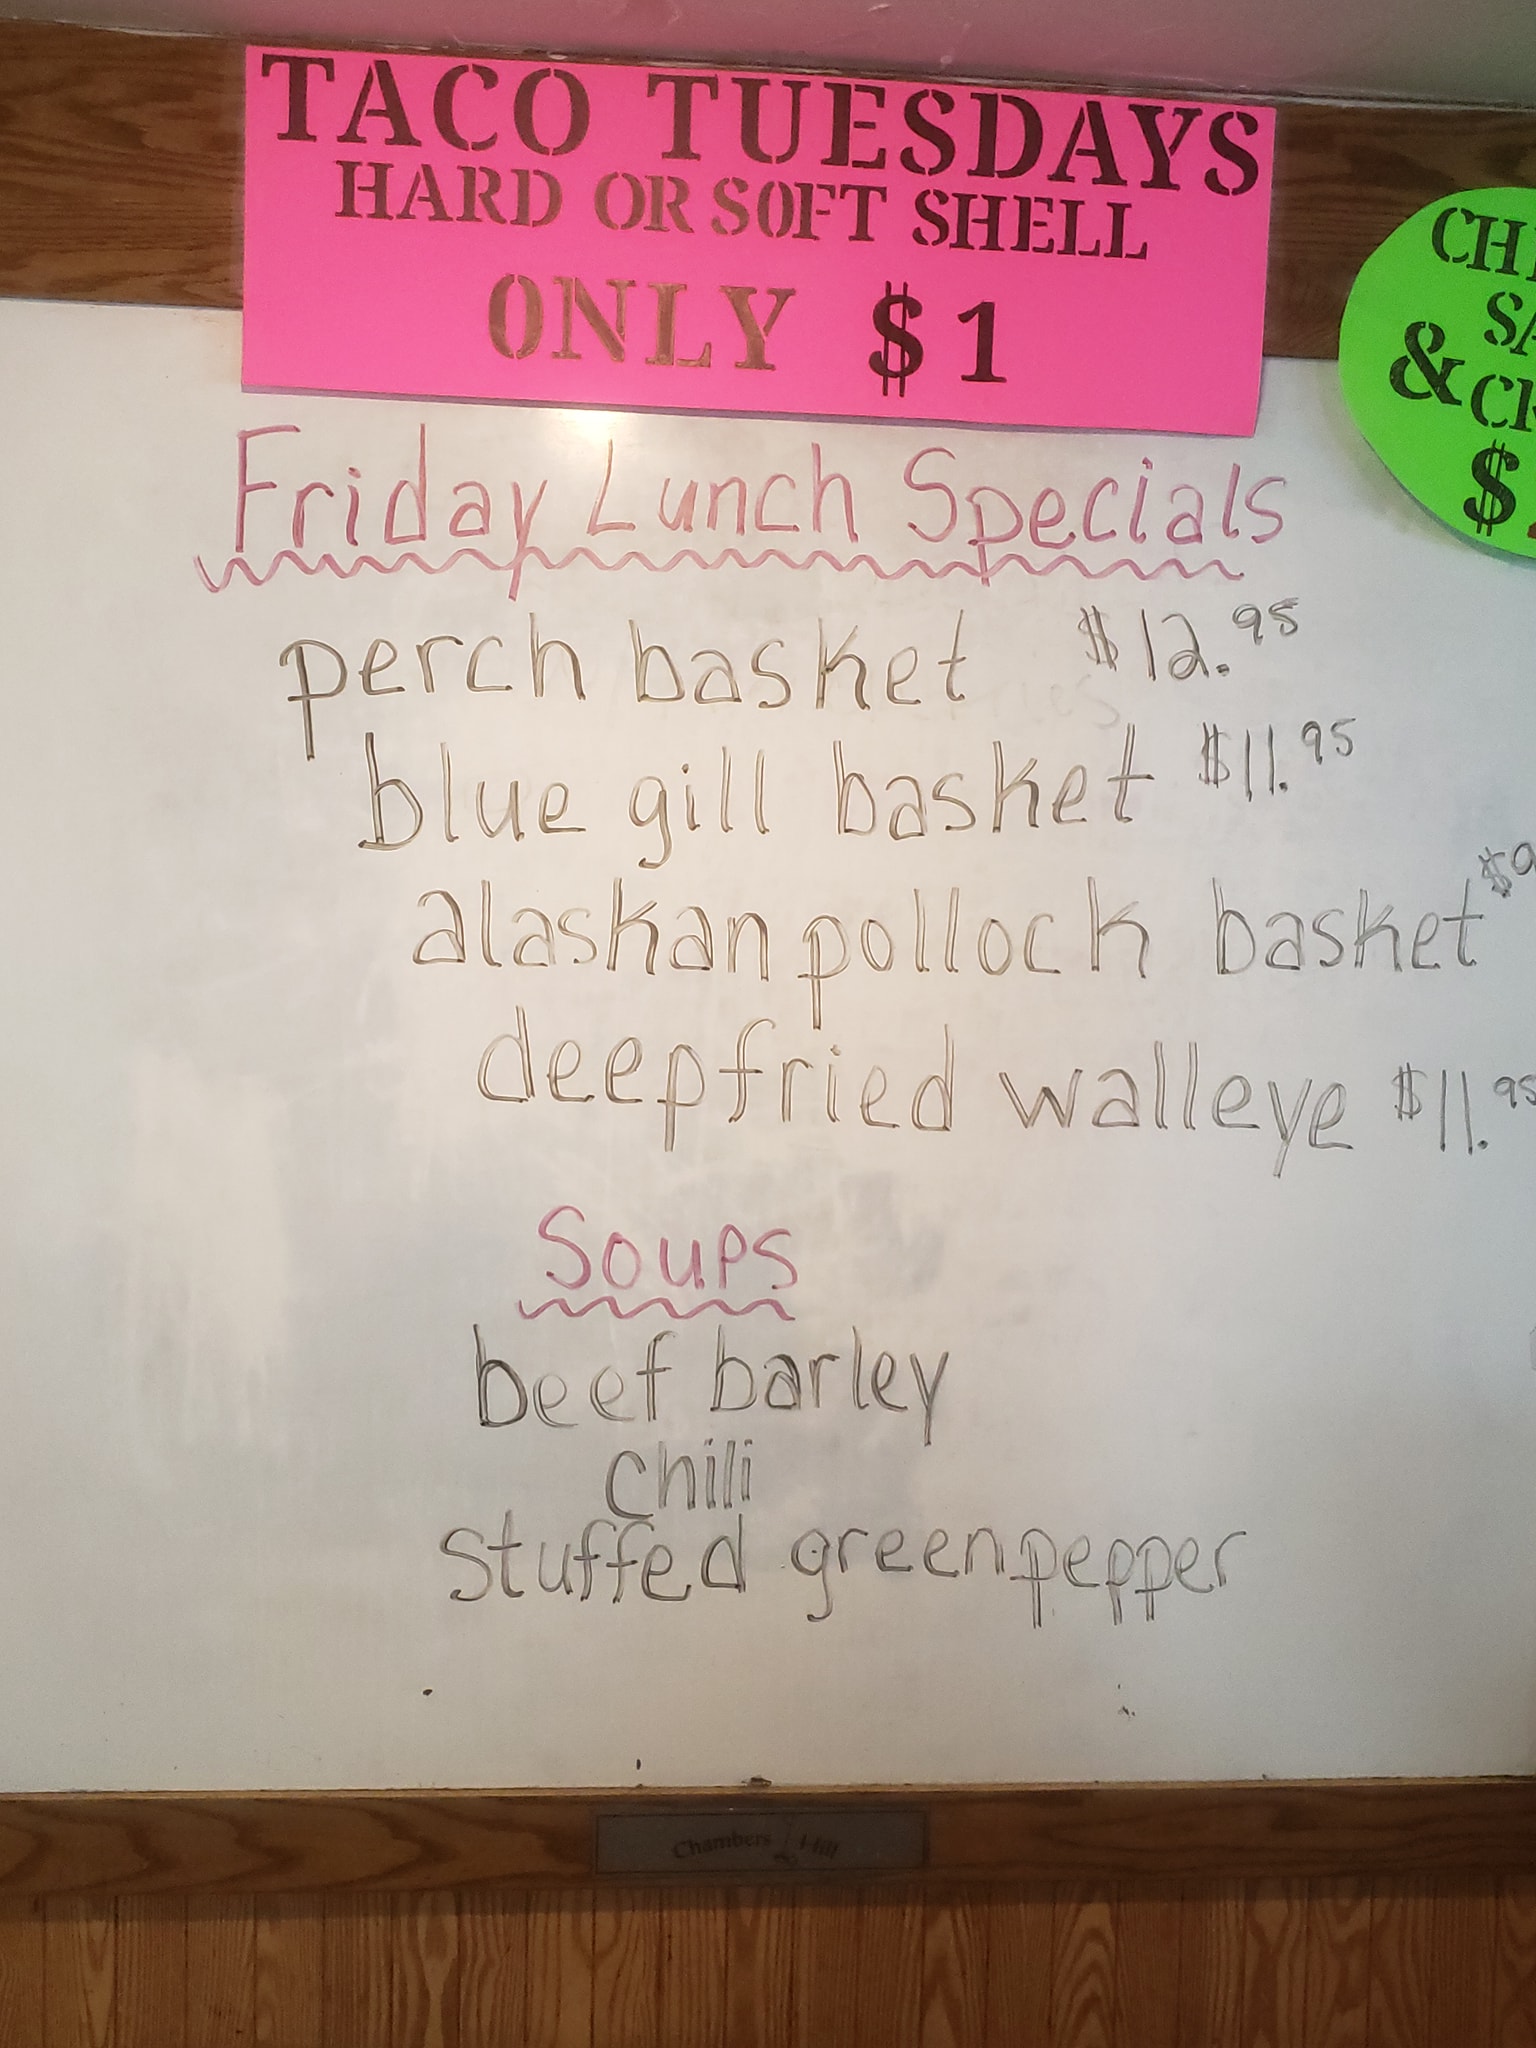 TACO TUESDAYS
HARD OR SOFT SHELL
ONLY $1
&
$
Friday Lunch Specials
perch basket $12.95
blue gill basket $11.95
alaskan pollock basket $9
deepfried walleye $11.95
Soups
beef barley
chili
stuffed greenpepper
Chambers Hill